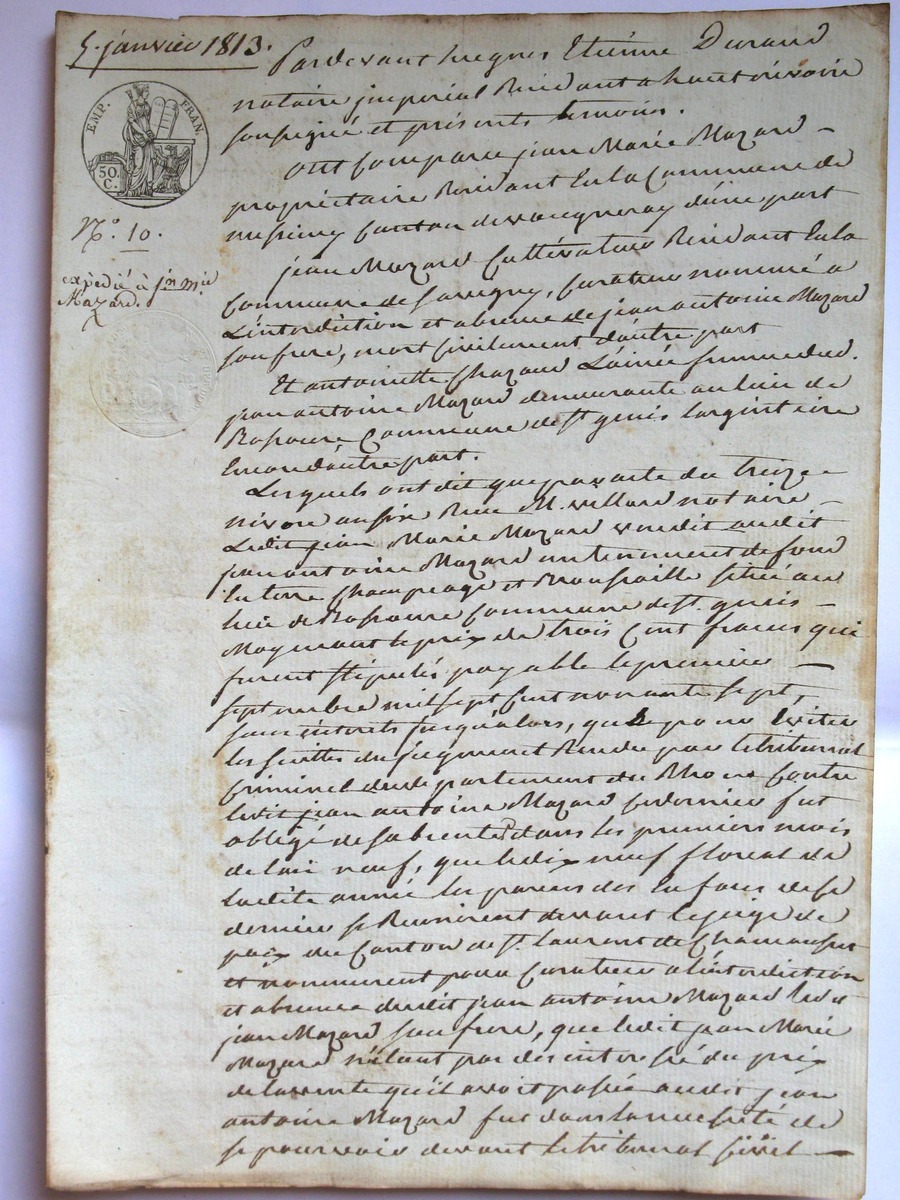 5. janvier 1813.
EMP. FRAN.
50. C.
N.° 10.
expédié à jn. mie
Mazard.
Pardevant Me gnes Etiénne Durand
notaire jmperial Residant a hauterivoire
soussigné et présents temoins.
ont Comparu jean Marie Mazard –
propriétaire Residant En la Commune de
messimy Canton de vaugneray d'une part
jean Mazard Cultivateur Residant En la
Commune de Savigny, Curateur nommé a
L'interdiction et absence de jean antoine Mazard
son frere, mort Civilement d'autre part
Et antoinette Chazaud L'ainée femme dud.
jean antoine Mazard demeurante au lieu de
Commune de St. genis Largentiere
Encore d'autre part.
Lesquels ont dit que par acte du treize –
nivose an six Reçu Me. villard notaire –
Ledit jean Marie Mazard vendit audit
jean antoine Mazard un tenement de fond
En terre Champeage et Brossaille situé au
lieu de Commune de St. genis –
Moyenant le prix de trois Cent francs qui
furent stipulés payable le premier –
septembre mil sept Cent nonante sept,
sans interets jusqu'alors, que pour Eviter
les suittes du jugement Rendu par le tribunal
Criminel du departement du Rhone Contre
ledit jean antoine Mazard Ce dernier fut
obligé de sabsenter dans les premiers mois
de lan neuf, que le dix neuf floreal de
ladite année les parens des Enfans de ce
dernier se Reunirent devant le juge de
paix du Canton de St. Laurent de Chamousset
et nommerent pour Curateur a l'interdiction
et absence dudit jean antoine Mazard led.
jean Mazard son frere, que ledit jean Marie
Mazard n'étant pas desinteressé du prix
de la vente qu'il avoit passée audit jean
antoine Mazard fut dans la necessité de
se pourvoir devant le tribunal Civil –